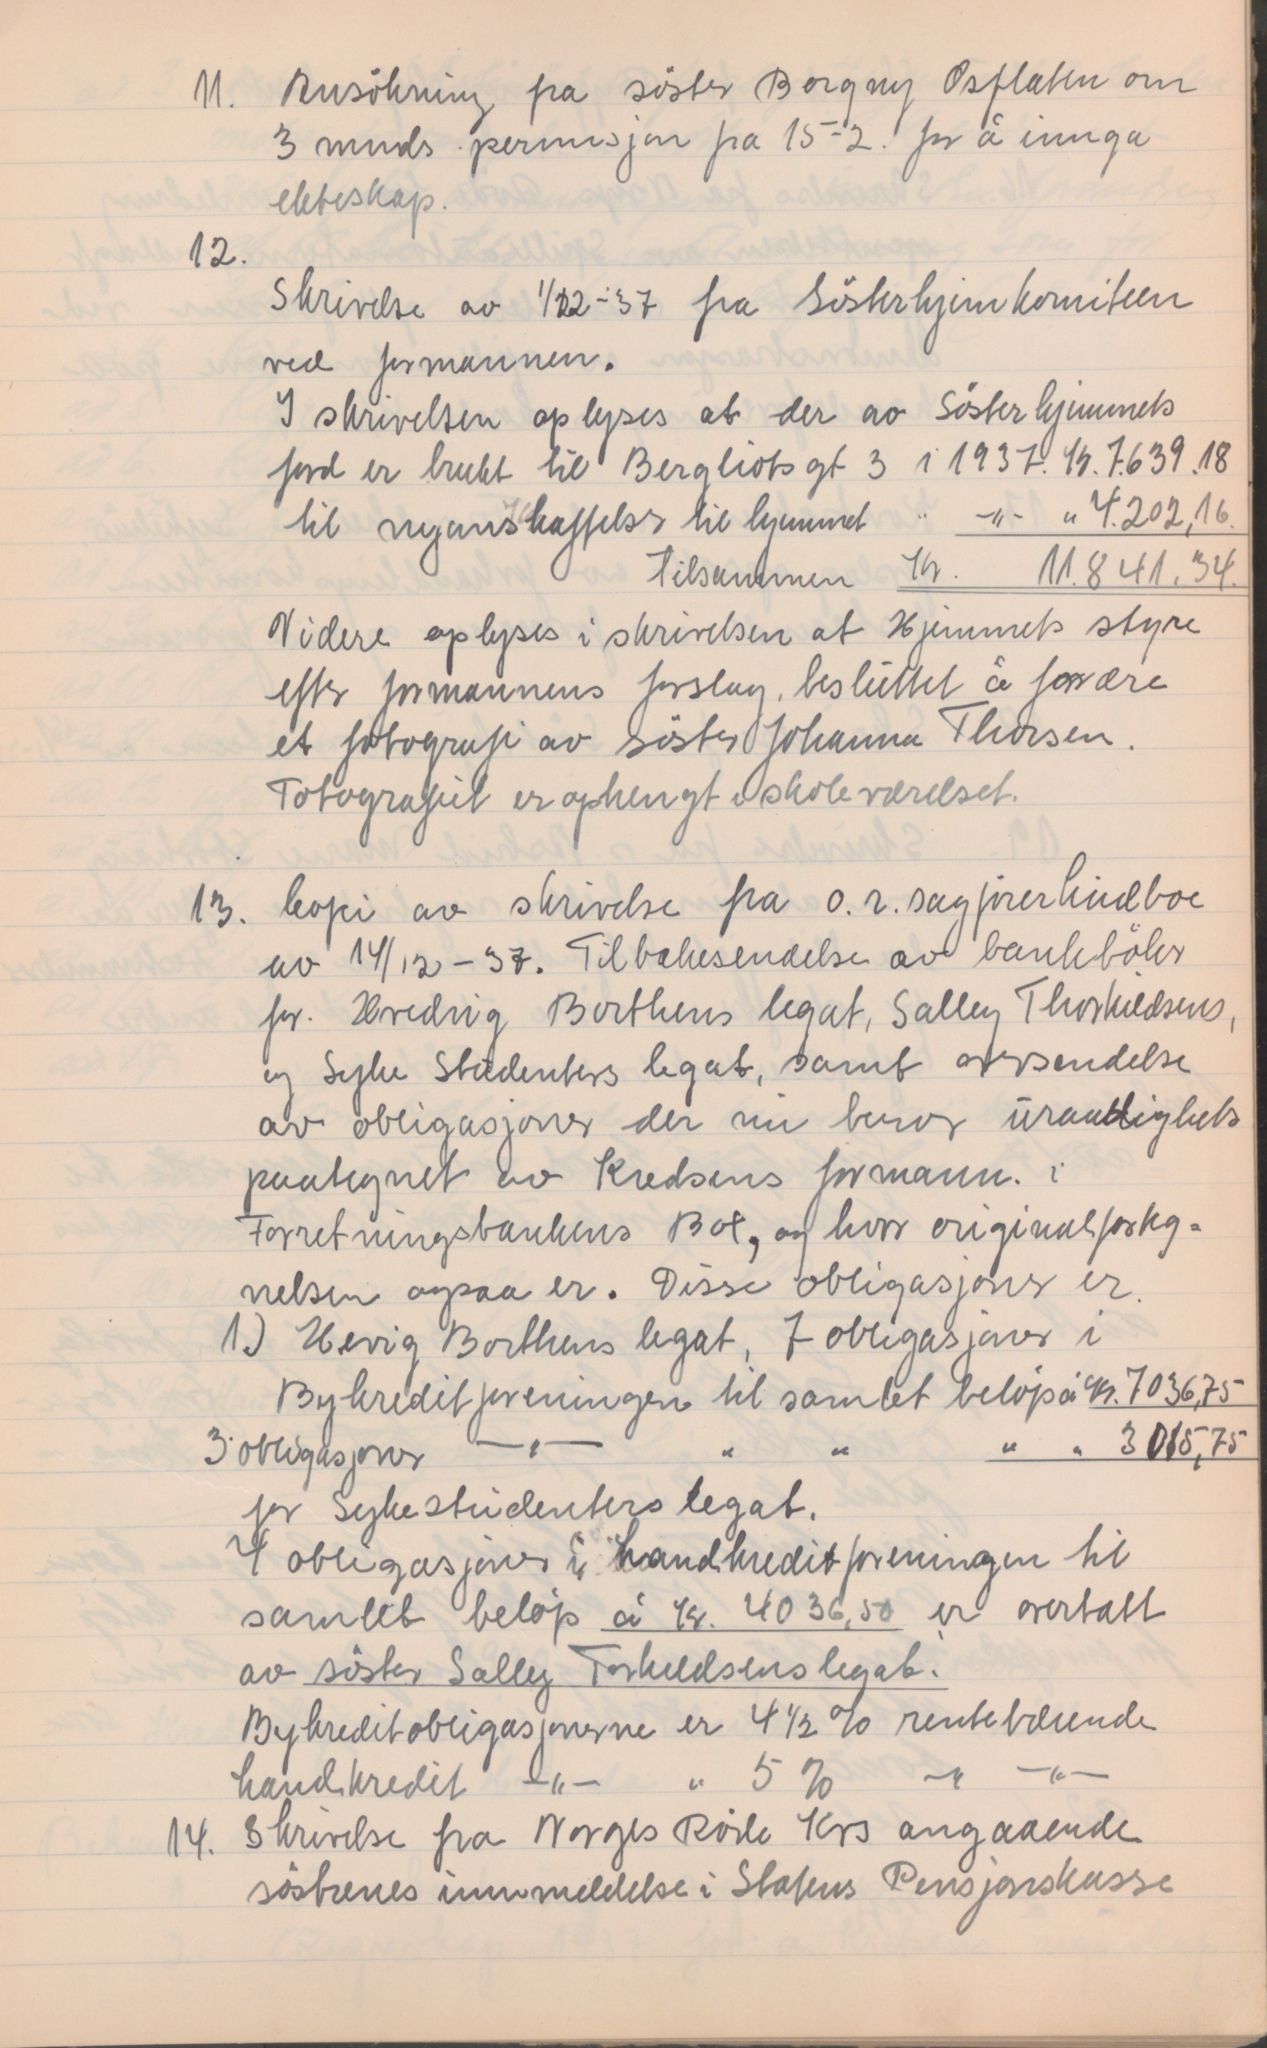 11. Ansökning fra söster Borgny Osflaten om
3 mnds permisjon fra 15-2. for å innga
ekteskap.
12.
Skrivelse av 1/12-37 fra Sösterhjemkomiteen
ved formannen.
I skrivelsen oplyses at der av Sösterhjemmets
fond er brukt til Bergliotsgt 3 i 1937. Kr. 7.639.18
til nyanskaffelser til hjemmet " -"- " 4.202,16.
Tilsammen Kr. 11.841.34.
Videre oplyses i skrivelsen at Hjemmets styre
efter formannens forslag, besluttet å forære
et fotografi av söster Johanna Thorsen.
Fotografiet er ophengt i skoleværelset.
13. Copi av skrivelse fra o.r.sagförer Lindboe
av 14/12-37. Tilbakesendelse av bankböker
for. Hredvig Borthens legat, Salley Thorkildsens,
og Syke Studenters legat, samt oversendelse
av obligasjoner der nu beror uraadighets
paategnet av Kredsens formann. i
Forretningsbankens Box, og hvor originalforteg-
nelsen ogsaa er. Disse obligasjoner er
1.) Hevig Borthens legat, 7 obligasjoner i
Bykreditforeningen til samlet belöp à Kr. 7036,75
3 obligasjoner -"- " " " " 3015,75
for Sykestudenters legat.
4 obligasjoner i Landkreditforeningen til
samlet belöp à Kr. 4036,50 er overtatt
av söster Salley Torkildsens legat.
Bykreditobligasjonerne er 4 1/2 % rentebærende
Landkredit -"- " 5 % -" -"-
14. Skrivelse fra Norges Röde Krs angaaende
söstrenes innmeldelse i Statens Pensjonskasse